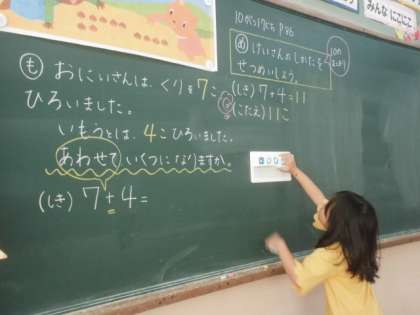 みんなにこにこ
10がつ17にち P86
も おにいさんは、くりを7こ
ひろいました。
いもうとは、4こひろいました。
あわせて いくつになりますか。
(しき) 7+4=
め けいさんのしかたを
せつめいしよう。
(しき) 7+4=11
(こたえ) 11こ